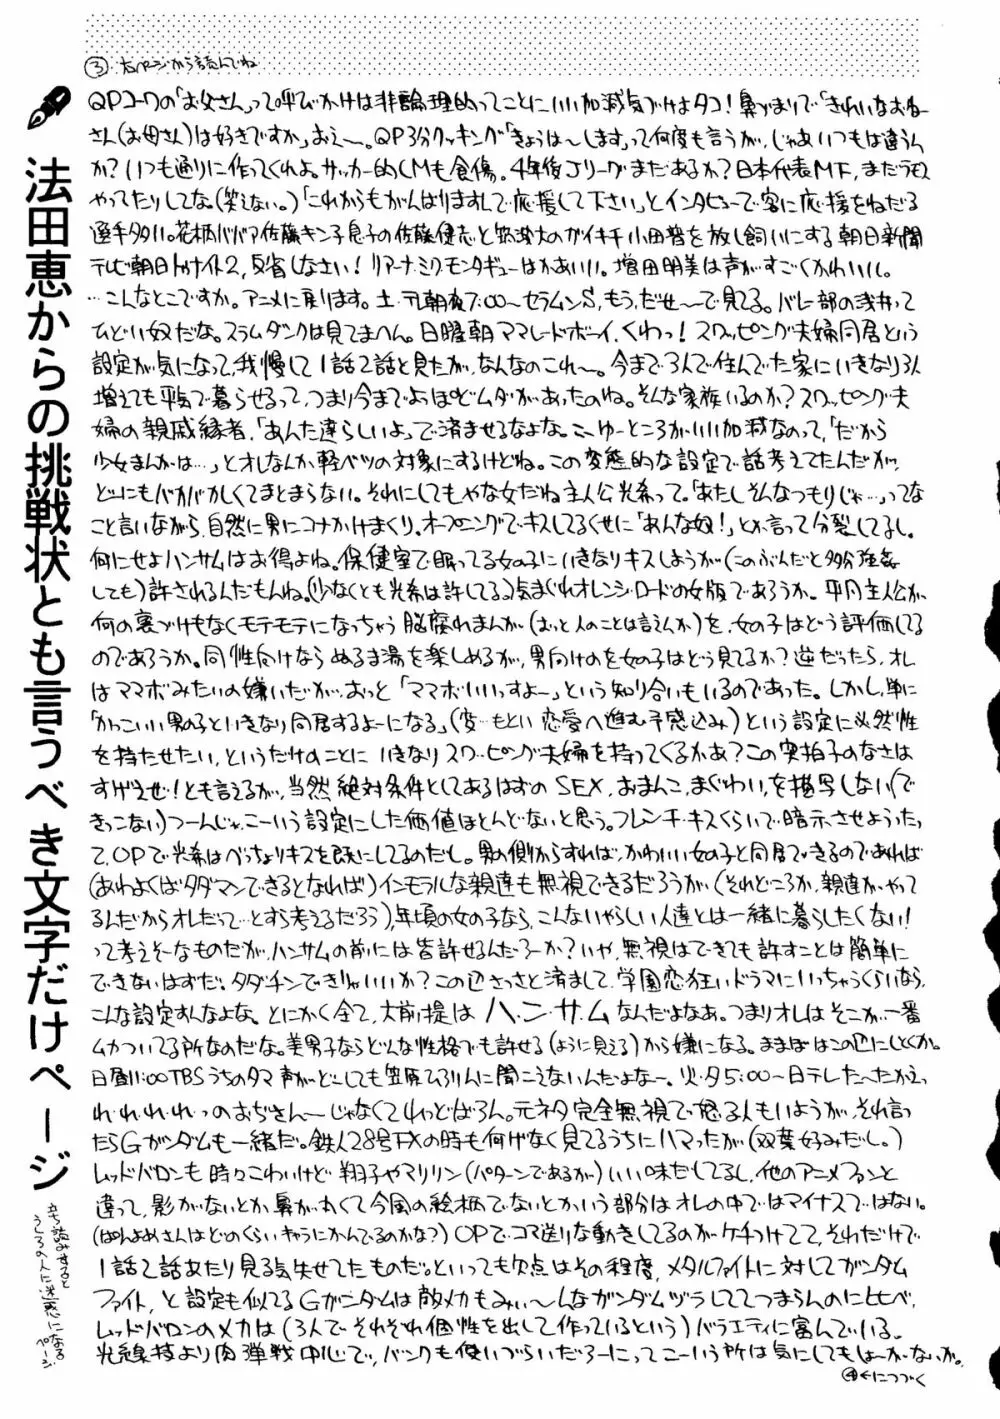 ③ 右ページから読んでね
QPコーワの「お父さん」って呼びかけは非論理的ってことにいい加減気づけよタコ！鼻づまりで「きれいなお母
さん(お母さん)は好きですか」おえ〜。QP3分クッキング「きょうは〜します」って何度も言うが、じゃあいつもは違うん
か？いつも通りに作ってくれよ。サッカー的CMも食傷。4年後Jリーグまだあるか？日本代表MF、まだラモス
やってたりしてな。(笑えない。)「これからもがんばりますんで応援して下さい」とインタビューで客に応援をねだる
選手多い。花柄ババア佐藤キン子息子の佐藤健志と筑波大のガイキチ小田晋を放し飼いにする朝日新聞
テレビ朝日トゥナイト2、反省しなさい！リアーナ・ミク・モンタギューはかあいい。増田明美は声がすごくかわいい。
…こんなとこですか。アニメに戻ります。土・テレ朝夜7:00〜セラムンS、もう、だせ〜で見てる。バレー部の浅井って
ひどい奴だな。スラムダンクは見てまへん。日曜朝ママレードボーイ、くわっ！スワッピング夫婦同居という
設定が気になって、我慢して1話2話と見たが、なんなのこれ〜。今まで3人で住んでた家にいきなり3人
増えても平気で暮らせるって、つまり今までよほどムダがあったのね。そんな家族いるのか？スワッピング夫
婦の親戚縁者、「あんた達らしいよ」で済ませるなよな。こーゆーところがいい加減なのって、「だから
少女まんがは…」とオレなんか軽ベツの対象にするけどね。この変態的な設定で話考えてたんだが、
どーにもバカバカしくてまとまらない。それにしてもやな女だね主人公光希って。「あたしそんなつもりじゃ…」ってな
こと言いながら、自然に男にコナかけまくり。オープニングでキスしてるくせに「あんな奴！」とか言って分裂してるし。
何にせよハンサムはお得よね。保健室で眠ってる女の子にいきなりキスしようが(このぶんだと多分強姦
しても)許されるんだもんね。(少なくとも光希は許してる)きまぐれオレンジ・ロードの女版であろうか。平凡主人公が、
何の裏づけもなくモテモテになっちゃう脳腐れまんが(おっと人のことは言えんか)を、女の子はどう評価してる
のであろうか。同性向けならぬるま湯を楽しめるが、男向けのを女の子はどう見てるか？逆だったら、オレ
はママボみたいの嫌いだが、おっと「ママボいいっすよ〜」という知り合いもいるのであった。しかし、単に
「かっこいい男の子といきなり同居するよーになる」(変…もとい恋愛へ進む予感込み)という設定に必然性
を持たせたい、というだけのことにいきなりスワッピング夫婦を持ってくるかあ？この突拍子のなさは
すげえぜ！とも言えるが、当然絶対条件としてあるはずのSEX、おまんこ、まぐわい、を描写しない(で
きっこない)つーんじゃ、こーいう設定にした価値ほとんどないと思う。フレンチ・キスくらいで暗示させようたっ
て、OPで光希はべっちょりキスを既にしてるのだし。男の側からすれば、かわいい女の子と同居できるのであれば
(あわよくばタダマンできるとなれば)インモラルな親達も無視できるだろうが、(それどころか、親達がやって
るんだからオレだって…とすら考えるだろう)年頃の女の子なら、こんないやらしい人達とは一緒に暮らしたくない！
って考えそーなものだが、ハンサムの前には皆許せるんだろーか？いや、無視はできても許すことは簡単に
できないはずだ。タダチンできりゃいいか？この辺さっさと済まして、学園恋狂いドラマにいっちゃうくらいなら、
こんな設定すんなよな。とにかく全て、大前提はハ・ン・サ・ムなんだよなあ。つまりオレはそこが一番
ムカついてる所なのだな。美男子ならどんな性格でも許せる(ように見える)から嫌になる。ままぼはこの辺にしとくか。
日昼11:00TBSうちのタマ声がどーしても笠原ひろりんに聞こえないんだよなー。火・夕5:00〜日テレた〜たかえっ
れ・れ・れ・れ・っのおぢさん〜じゃなくてれっどばろん。元ネタ完全無視で怒る人もいようが、それ言っ
たらGガンダムも一緒だ。鉄人28号FXの時も何げなく見てるうちにハマったが(双葉好みだし。)
レッドバロンも時々こわいけど翔子やマリリン(パターンであるが)いい味だしてるし、他のアニメファンと
違って、影がないとか鼻が丸くて今風の絵柄でないとかいう部分はオレの中ではマイナスではない。
(ぱんよめさんはどのくらいキャラにかんでるのかな？)OPでコマ送りな動きしてるのがケチつけてて、それだけで
1話2話あたり見る気失せてたものだ。といっても欠点はその程度、メタルファイトに対してガンダム
ファイト、と設定も似てるGガンダムは敵メカもみぃ〜んなガンダムヅラしててつまらんのに比べ、
レッドバロンのメカは(3人でそれぞれ個性を出して作っているという)バラエティに富んでいる。
光線技より肉弾戦中心で、バンクも使いづらいだろーにってこーいう所は気にしてもしょーがないか。
④へつづく
法田恵からの挑戦状とも言うべき文字だけページ
立ち読みすると
うしろの人に迷惑になる
ページ